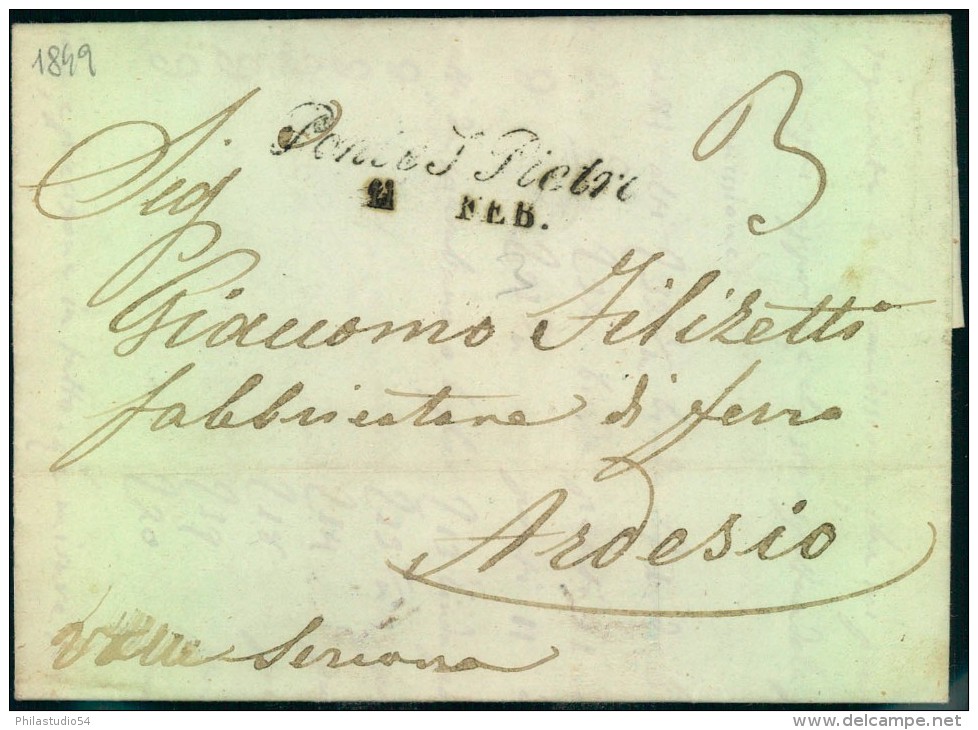 1849
Ponte S Pietro
FEB.
3
Sig
Giacomo Filizetti
fabbricatore di ferro
Ardesio
Valle Seriana
Philastudio54
delcampe.net